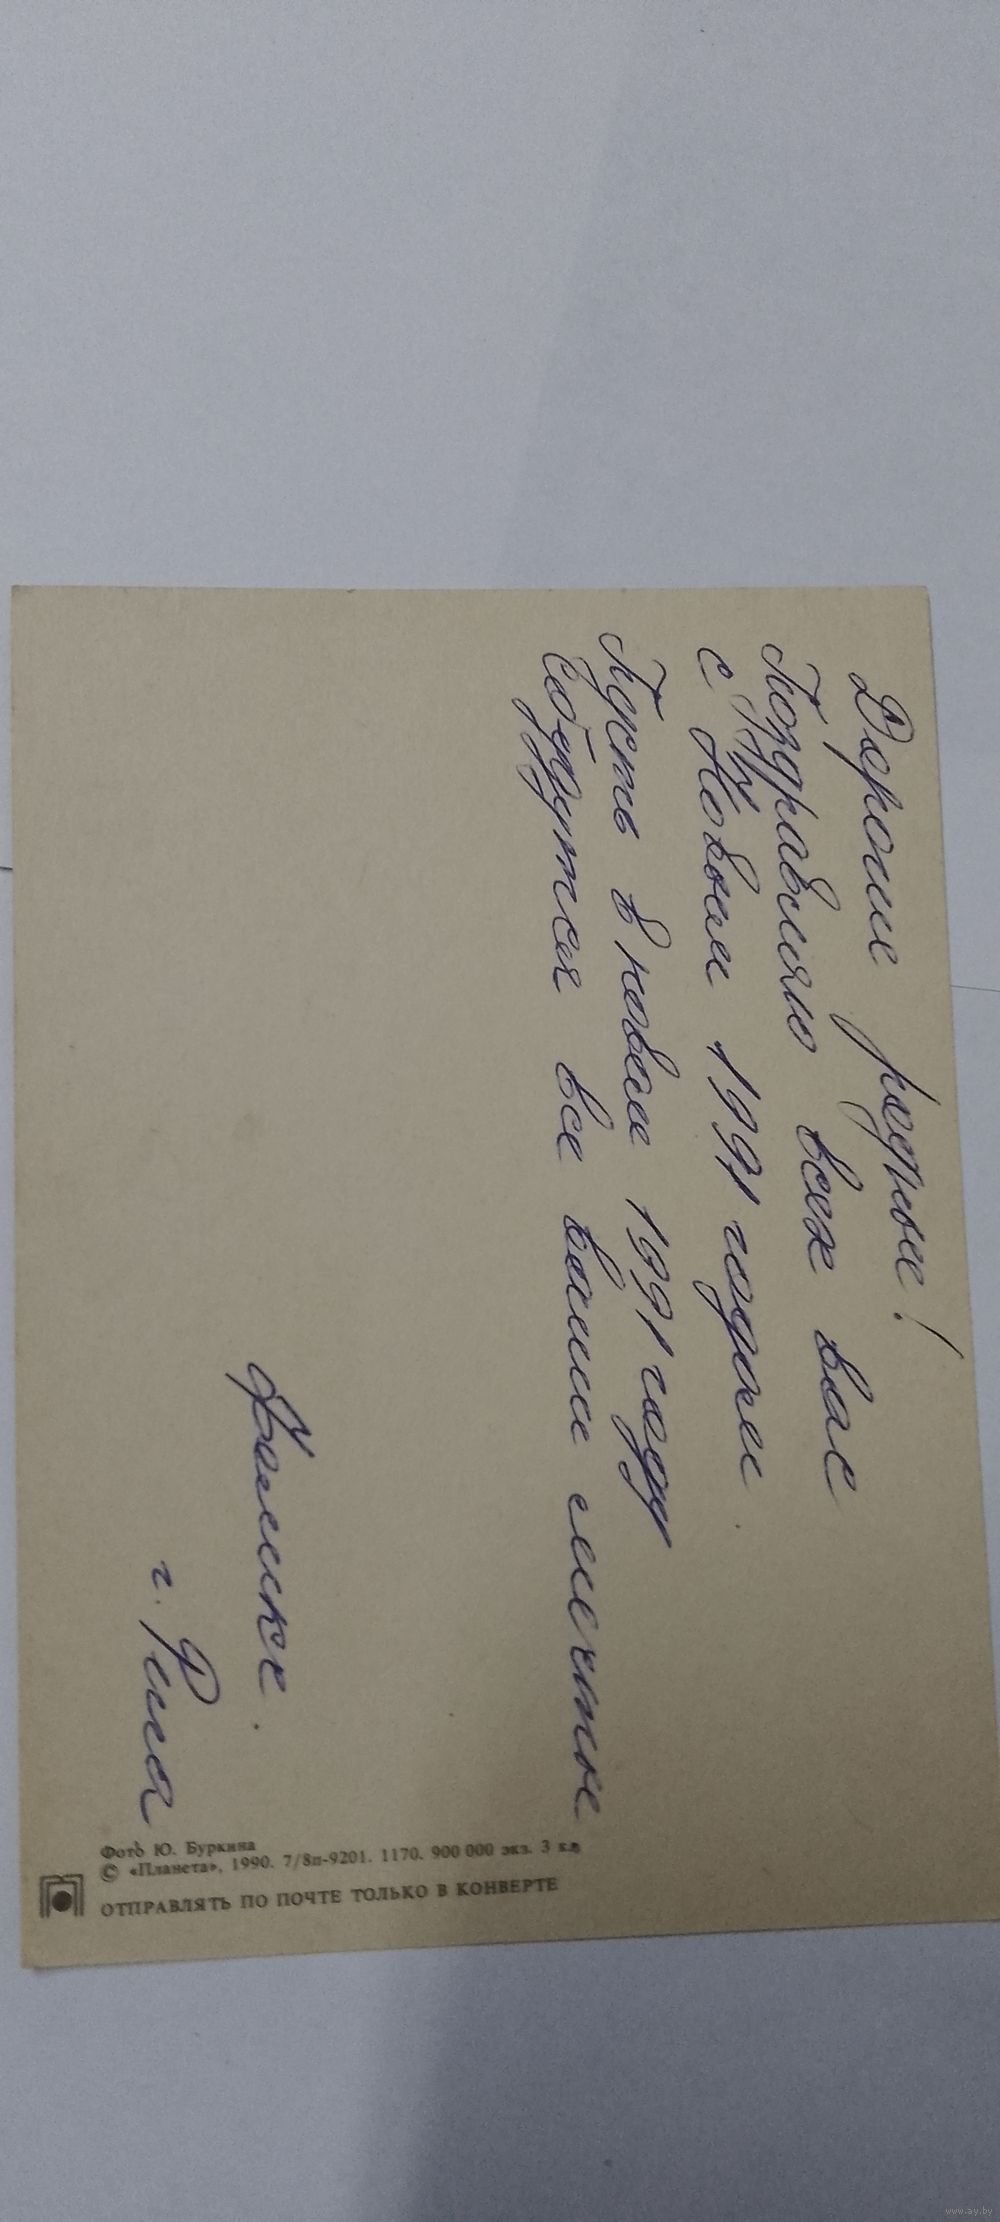 Дорогие родные!
Поздравляю всех вас
с Новым 1991 годом
Пусть в новом 1991 году
сбудутся все ваши мечты
г. Рига
Фото Ю. Буркина
© «Планета», 1990. 7/8п-9201. 1170. 900 000 экз. 3 к.
ОТПРАВЛЯТЬ ПО ПОЧТЕ ТОЛЬКО В КОНВЕРТЕ
www.ay.by